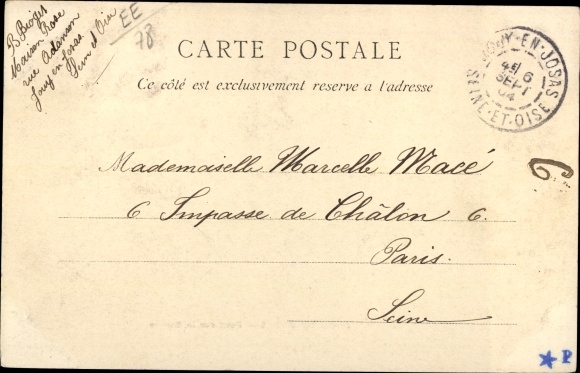 B Bioget
Maison Rose
rue Adanson
Jouy en Josas
Seine et Oise
EE
78
CARTE POSTALE
Ce côté est exclusivement reserve a l'adresse
JOUY-EN-JOSAS
4E
6
SEPT
04
SEINE-ET-OISE
Mademoiselle Marcelle Macé
6 Impasse de Châlon 6.
Paris.
Seine
6
★ P